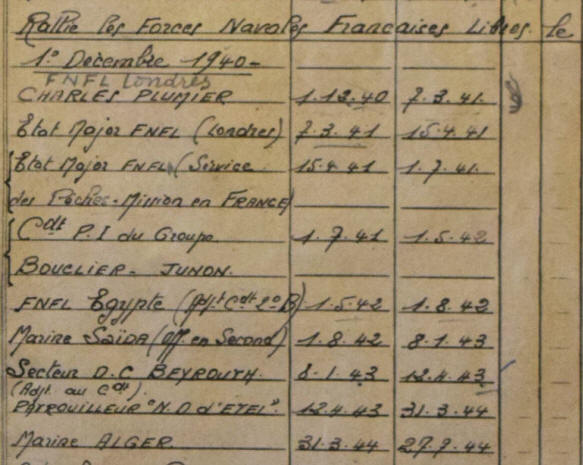 Rallié les Forces Navales Francaises Libres. le
1º Décembre 1940-
FNFL Londres
CHARLES PLUMIER 1.12.40 7.3.41.
Etat Major FNFL (Londres) 7.3.41 15.4.41
Etat Major FNFL (Service 15.4.41 1.7.41.
des Pêches-Mission en FRANCE)
Cdt P.I du Groupe 1.7.41 1.5.42
BOUCLIER - JUNON.
FNFL Egypte (Adjt Cdt 2º B) 1.5.42 1.8.42
Marine Saïda (Off en Second) 1.8.42 8.1.43
Secteur D.C BEYROUTH. 8.1.43 12.4.43
(Adjt. au Cdt).
PATROUILLEUR "N.D d'ETEL". 12.4.43 31.3.44
Marine ALGER 31.3.44 27.7.44